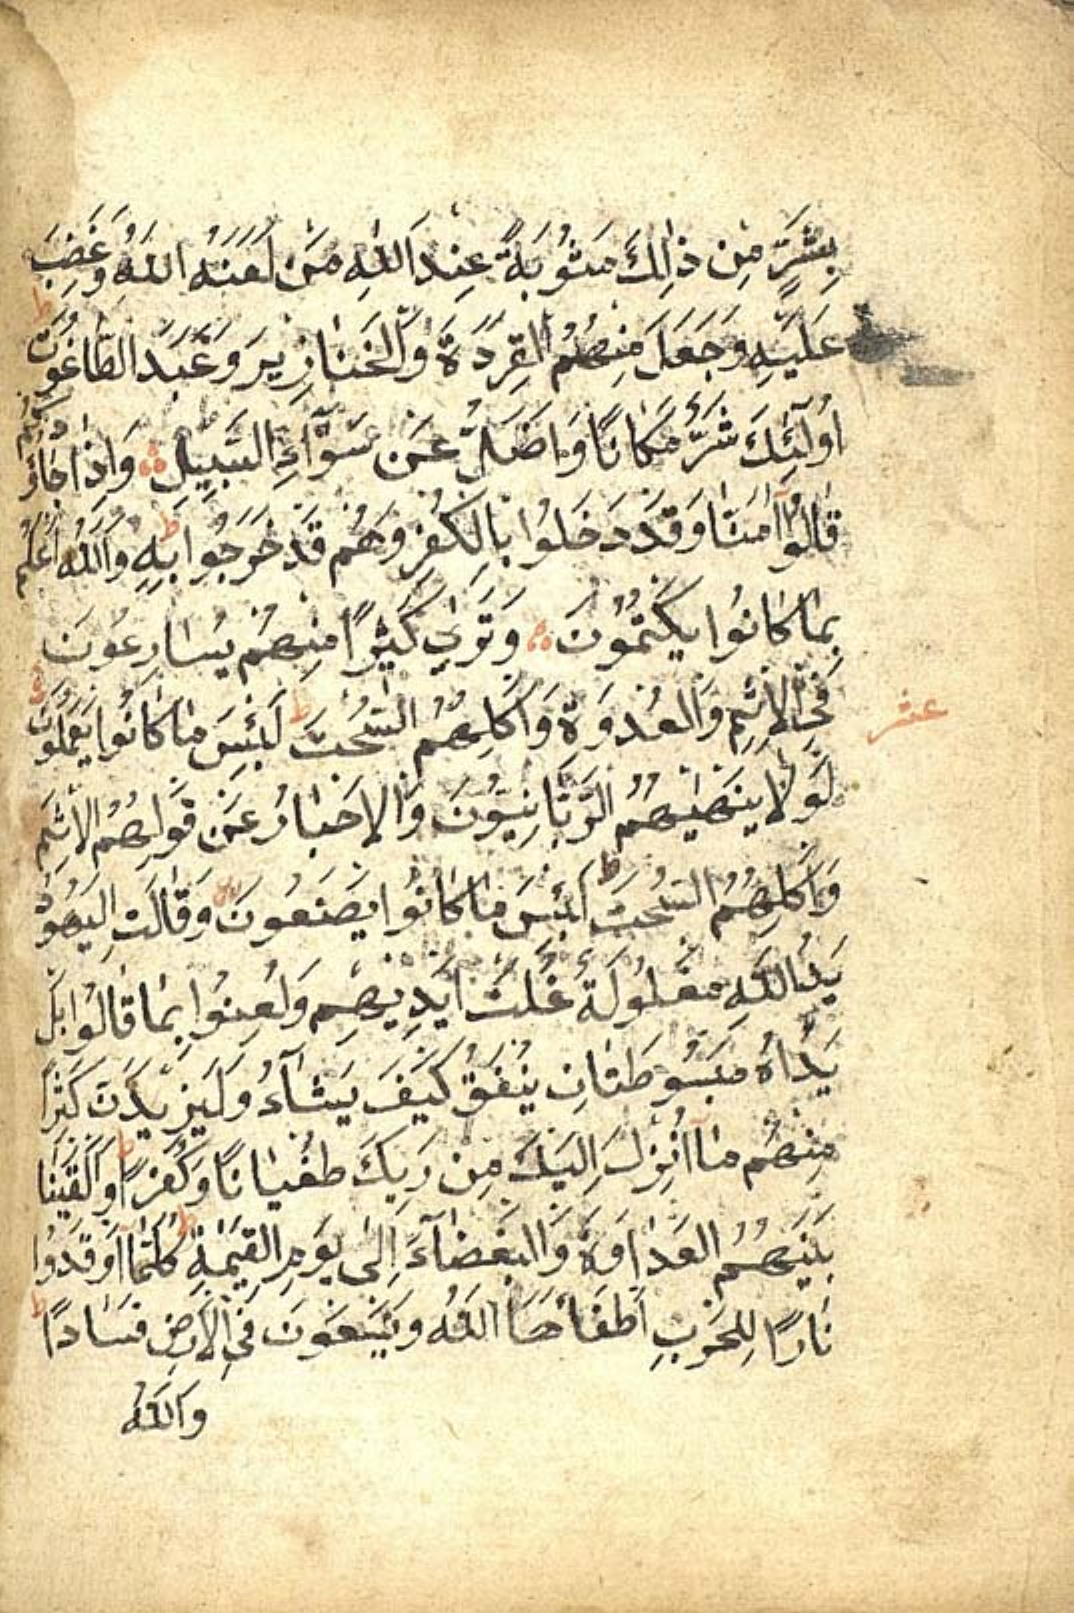 بِشَرٍّ مِنْ ذٰلِكَ مَثُوبَةً عِنْدَ اللّٰهِ مَنْ لَعَنَهُ اللّٰهُ وَغَضِبَ
عَلَيْهِ وَجَعَلَ مِنْهُمُ الْقِرَدَةَ وَالْخَنَازِيرَ وَعَبَدَ الطَّاغُوتَ ط
اُولٰٓئِكَ شَرٌّ مَكَانًا وَاَضَلُّ عَنْ سَوَآءِ السَّبِيلِ وَاِذَا جَاؤُكُمْ
قَالُوٓا اٰمَنَّا وَقَدْ دَخَلُوا بِالْكُفْرِ وَهُمْ قَدْ خَرَجُوا بِهِ ط وَاللّٰهُ اَعْلَمُ
بِمَا كَانُوا يَكْتُمُونَ وَتَرٰى كَثِيرًا مِنْهُمْ يُسَارِعُونَ
فِى الْاِثْمِ وَالْعُدْوَةِ وَاَكْلِهِمُ السُّحْتَ ط لَبِئْسَ مَا كَانُوا يَعْمَلُونَ
عشر
لَوْلَا يَنْهٰيهُمُ الرَّبَّانِيُّونَ وَالْاَحْبَارُ عَنْ قَوْلِهِمُ الْاِثْمَ
وَاَكْلِهِمُ السُّحْتَ ط لَبِئْسَ مَا كَانُوا يَصْنَعُونَ وَقَالَتِ الْيَهُودُ
يَدُ اللّٰهِ مَغْلُولَةٌ غُلَّتْ اَيْدِيهِمْ وَلُعِنُوا بِمَا قَالُوا بَلْ
يَدَاهُ مَبْسُوطَتَانِ يُنْفِقُ كَيْفَ يَشَآءُ وَلَيَزِيدَنَّ كَثِيرًا
مِنْهُمْ مَآ اُنْزِلَ اِلَيْكَ مِنْ رَبِّكَ طُغْيَانًا وَكُفْرًا ط وَاَلْقَيْنَا
بَيْنَهُمُ الْعَدَاوَةَ وَالْبَغْضَآءَ اِلٰى يَوْمِ الْقِيٰمَةِ ط كُلَّمَآ اَوْقَدُوا
نَارًا لِلْحَرْبِ اَطْفَأَهَا اللّٰهُ وَيَسْعَوْنَ فِى الْاَرْضِ فَسَادًا ط
وَاللّٰهُ